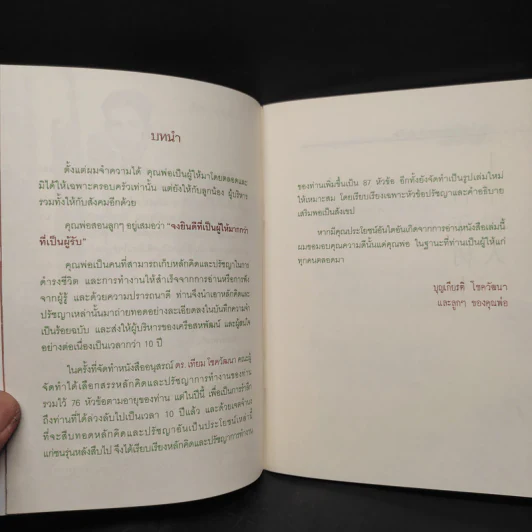 บทนำ
ตั้งแต่ผมจำความได้ คุณพ่อเป็นผู้ให้มาโดยตลอดและ
มิได้ให้เฉพาะครอบครัวเท่านั้น แต่ยังให้กับลูกน้อง ผู้บริหาร
รวมทั้งให้กับสังคมอีกด้วย
คุณพ่อสอนลูกๆ อยู่เสมอว่า "จงยินดีที่เป็นผู้ให้มากกว่า
ที่เป็นผู้รับ"
คุณพ่อเป็นคนที่สามารถเก็บหลักคิดและปรัชญาในการ
ดำรงชีวิต และการทำงานให้สำเร็จจากการอ่านหรือการฟัง
จากผู้รู้ และด้วยความปรารถนาดี ท่านจึงนำเอาหลักคิดและ
ปรัชญาเหล่านั้นมาถ่ายทอดอย่างละเอียดลงในบันทึกความจำ
เป็นร้อยฉบับ และส่งให้ผู้บริหารของเครือสหพัฒน์ และผู้สนใจ
อย่างต่อเนื่องเป็นเวลากว่า 10 ปี
ในครั้งที่จัดทำหนังสืออนุสรณ์ ดร.เทียม โชควัฒนา คณะผู้
จัดทำได้เลือกสรรหลักคิดและปรัชญาการทำงานของท่าน
รวมไว้ 76 หัวข้อตามอายุของท่าน แต่ในปีนี้ เพื่อเป็นการรำลึก
ถึงท่านที่ได้ล่วงลับไปเป็นเวลา 10 ปีแล้ว และด้วยเจตจำนง
ที่จะสืบทอดหลักคิดและปรัชญาอันเป็นประโยชน์เหล่านี้
แก่ชนรุ่นหลังสืบไป จึงได้เรียบเรียงหลักคิดและปรัชญาการทำงาน
ของท่านเพิ่มขึ้นเป็น 87 หัวข้อ อีกทั้งยังจัดทำเป็นรูปเล่มใหม่
ให้เหมาะสม โดยเรียบเรียงเฉพาะหัวข้อปรัชญาและคำอธิบาย
เสริมพอเป็นสังเขป
หากมีคุณประโยชน์อันใดอันเกิดจากการอ่านหนังสือเล่มนี้
ผมขอมอบคุณความดีนั้นแด่คุณพ่อ ในฐานะที่ท่านเป็นผู้ให้แก่
ทุกคนตลอดมา
บุญเกียรติ โชควัฒนา
และลูกๆ ของคุณพ่อ